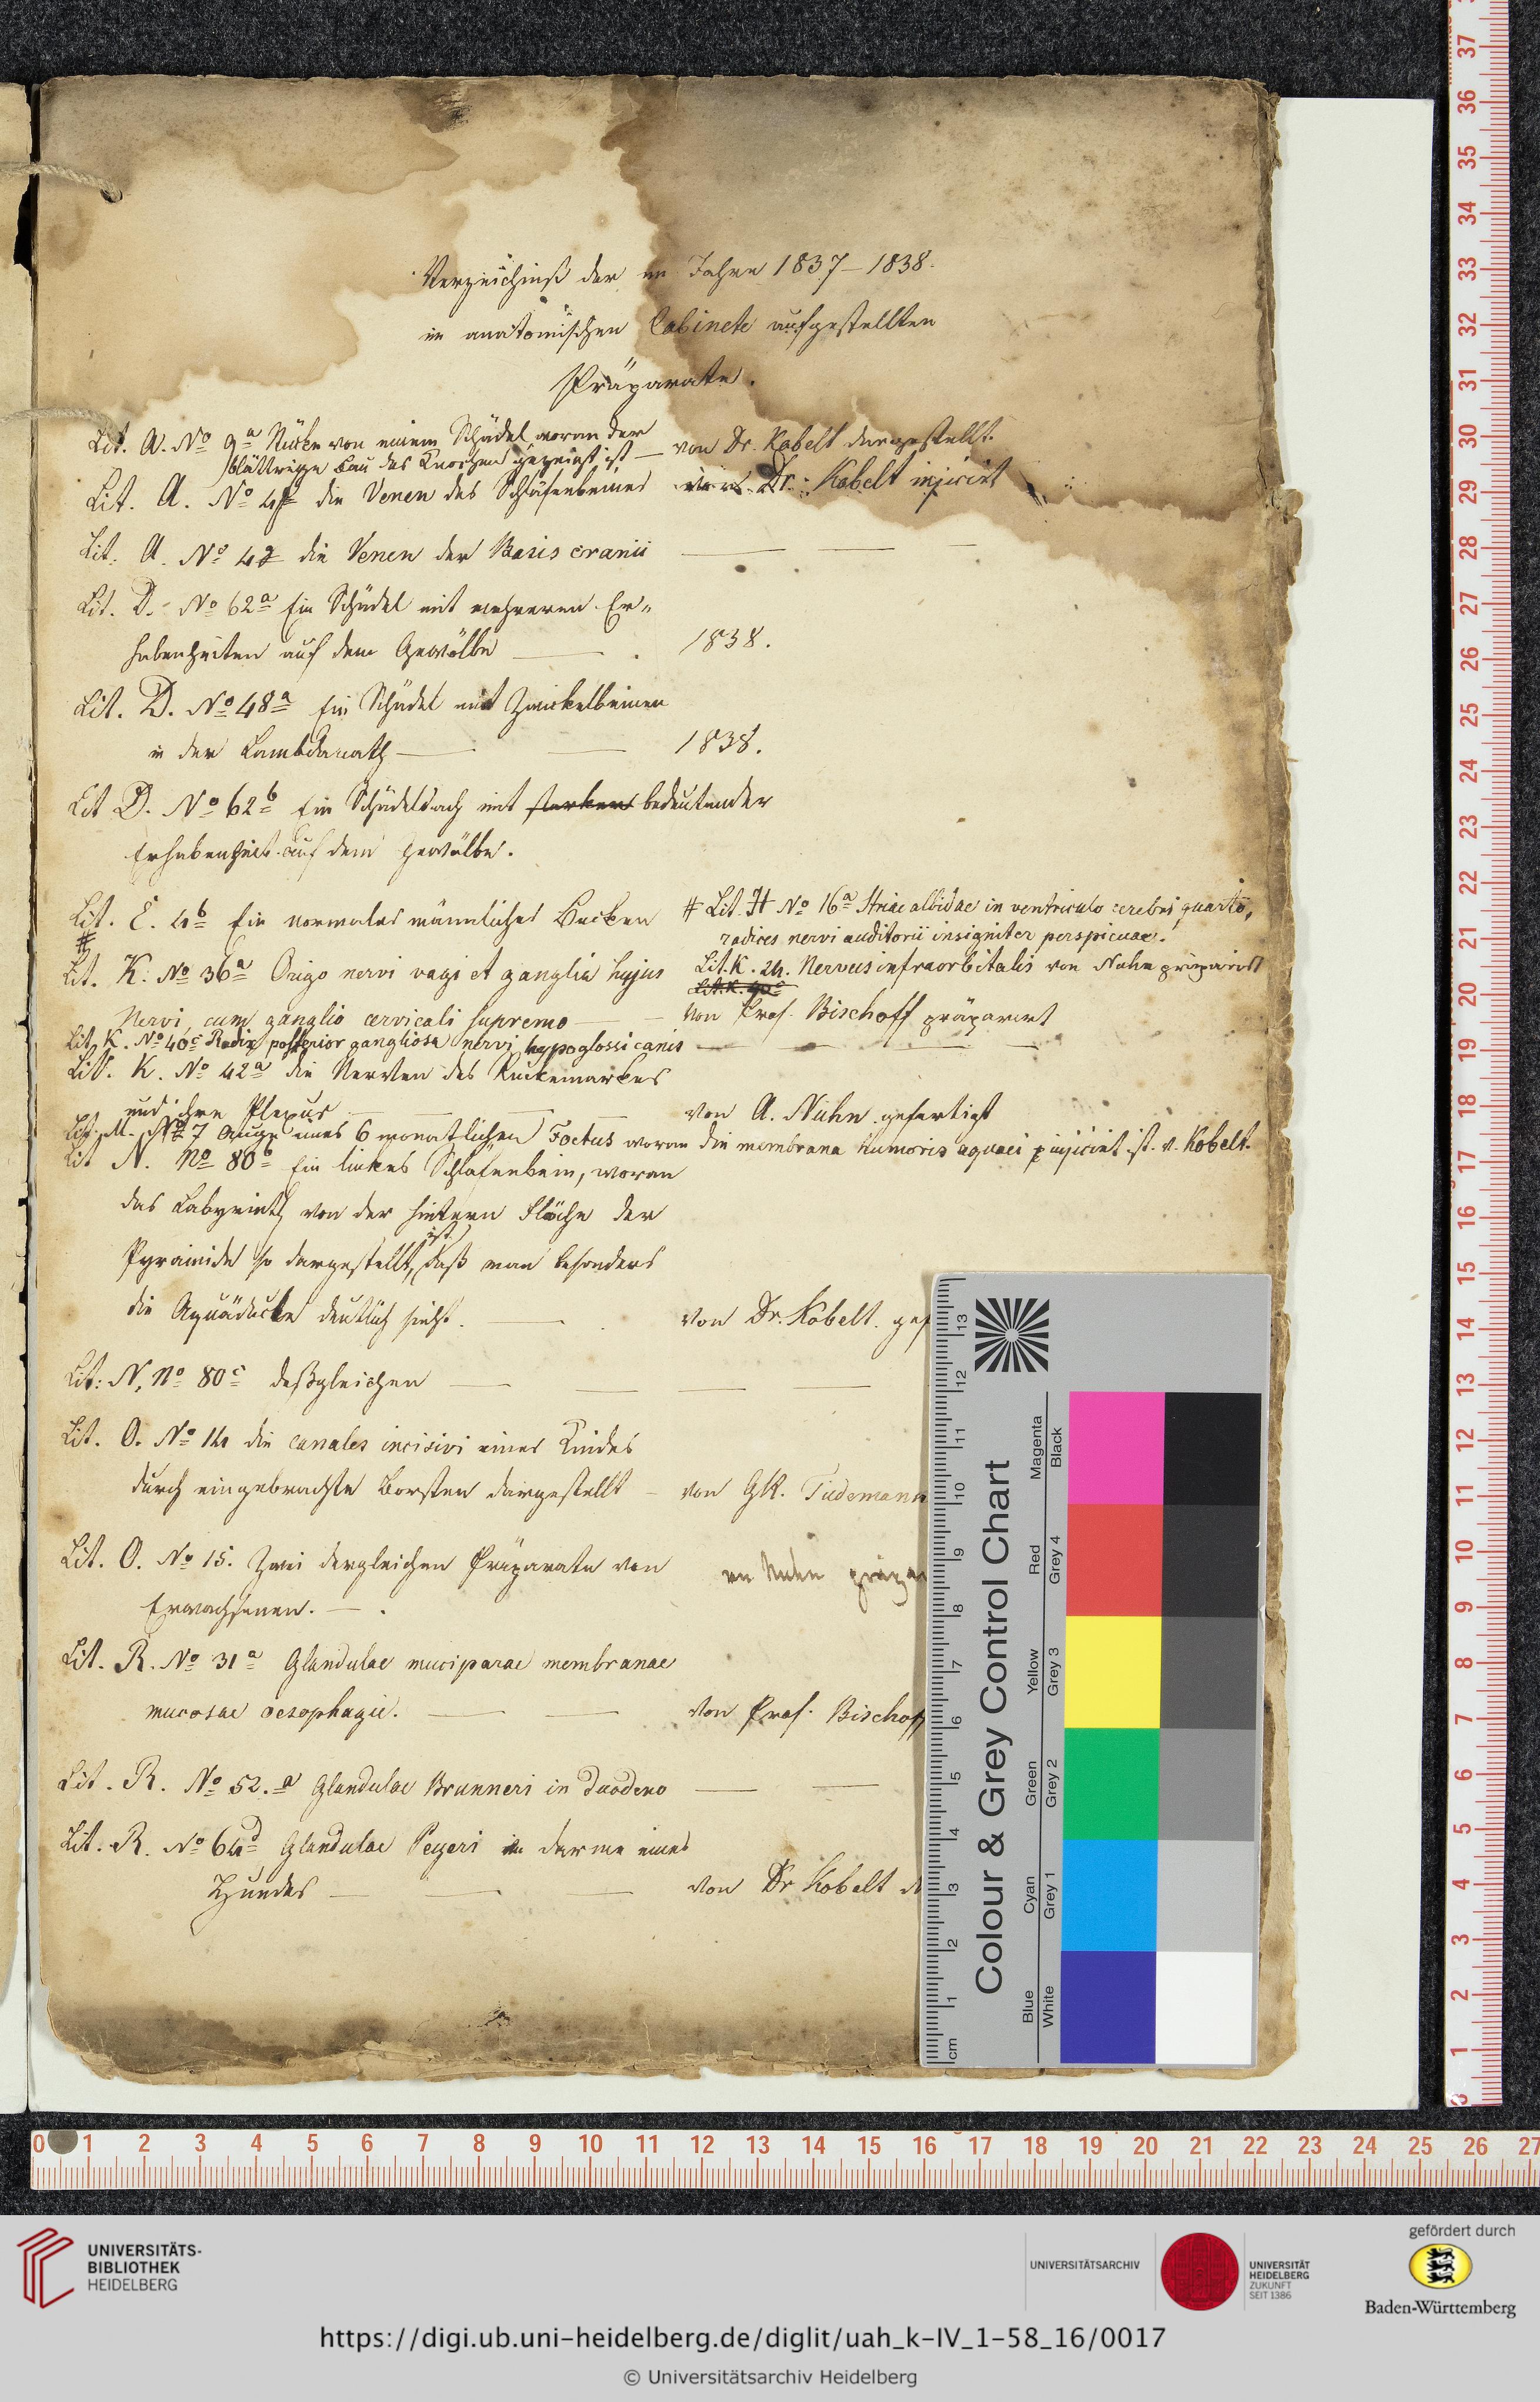 Verzeichniß der im Jahre 1837–1838.
im anatomischen Cabinete aufgestellten
Präparate.
Lit. A. No 9a Stücke von einem Schädel woran der
blättrige Bau des Knochen gezeigt ist — von Dr. Kobelt dargestellt.
Lit. A. No 4f die Venen des Schläfenbeines von Dr. Kobelt injicirt
Lit. A. No 42 die Venen der Basis cranii — — —
Lit. D. No 62a Ein Schädel mit mehreren Er„
habenheiten auf dem Gewölbe — . 1838.
Lit. D. No 48a Ein Schädel mit Zwickelbeinen
in der Lambdanath — — 1838.
Lit D. No 62b Ein Schädeldach mit starken bedeutender
Erhabenheit auf dem Gewölbe.
Lit. E. 4b Ein normales männliches Becken
# Lit. H No 16a Striae albidae in ventriculo cerebri quarto,
radices nervi auditorii insigniter perspicuae.
#
Lit. K. No 36a Origo nervi vagi et ganglia hujus
Lit. K. 24. Nervus infraorbitalis von Nuhn präparirt
Lit. K. 40c
Nervi, cum ganglio cervicali supremo — — von Prof. Bischoff präparirt
Lit. K. No 40c Radix posterior gangliosa nervi hypoglossi canis — — — —
Lit. K. No 42a die Nerven des Rückemarkes
und ihre Plexus — — — — von A. Nuhn gefertigt
Lit. M. No 7 Auge eines 6 monatlichen Foetus woran die membrana humoris aquaei injicirt ist. v. Kobelt.
Lit N. No 80b Ein linkes Schläfenbein, woran
das Labyrinth von der hintern Fläche der
ist
Pyramide so dargestellt, daß man besonders
die Aquäducte deutlich sieht. — . von Dr. Kobelt. gef
Lit: N, No 80c deßgleichen — — — —
Lit. O. No 14 die canales incisivi eines Kindes
durch eingebrachte Borsten dargestellt — von GR. Tiedemann
Lit. O. No 15. Zwei dergleichen Präparate von
von Nuhn präpa
Erwachsenen. — .
Lit. R. No 31a Glandulae muciparae membranae
mucosae oesophagii. — — von Prof. Bischoff
Lit. R. No 52.a Glandulae Brunneri in duodeno — —
Lit. R. No 64d Glandulae Peyeri im Darme eines
Hundes — — — von Dr Kobelt
Colour & Grey Control Chart
Blue Cyan Green Yellow Red Magenta
White Grey 1 Grey 2 Grey 3 Grey 4 Black
cm 1 2 3 4 5 6 7 8 9 10 11 12 13
37
36
35
34
33
32
31
30
29
28
27
26
25
24
23
22
21
20
19
18
17
16
15
14
13
12
11
10
9
8
7
6
5
4
3
2
1
0 1 2 3 4 5 6 7 8 9 10 11 12 13 14 15 16 17 18 19 20 21 22 23 24 25 26 27
UNIVERSITÄTS-
BIBLIOTHEK
HEIDELBERG
UNIVERSITÄTSARCHIV
UNIVERSITÄT
HEIDELBERG
ZUKUNFT
SEIT 1386
gefördert durch
Baden-Württemberg
https://digi.ub.uni-heidelberg.de/diglit/uah_k-IV_1-58_16/0017
© Universitätsarchiv Heidelberg